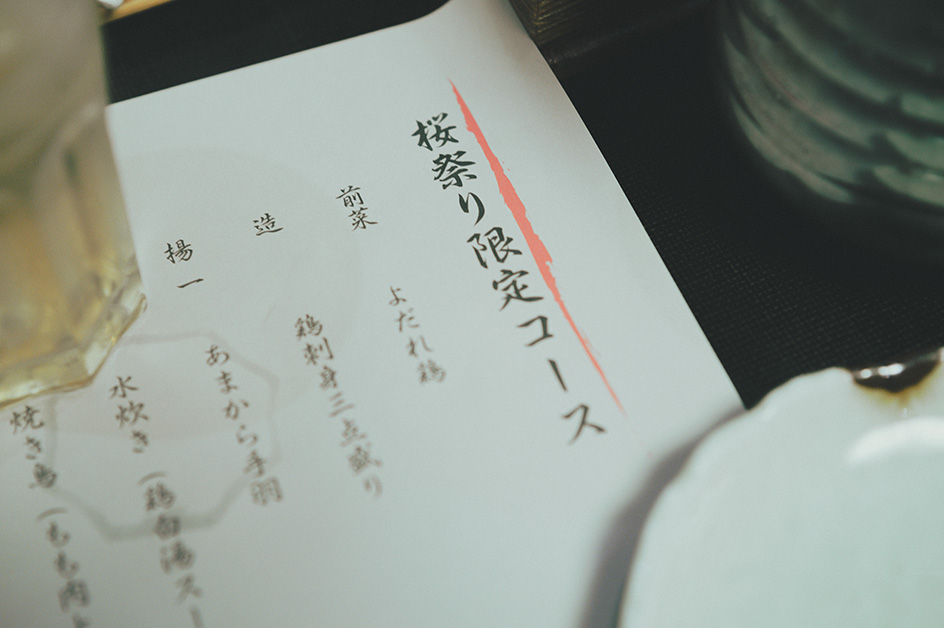 桜祭り限定コース
前菜
よだれ鶏
造
鶏刺身三点盛り
揚一
あまから手羽
水炊き(鶏白湯スー
焼き鳥(もも肉